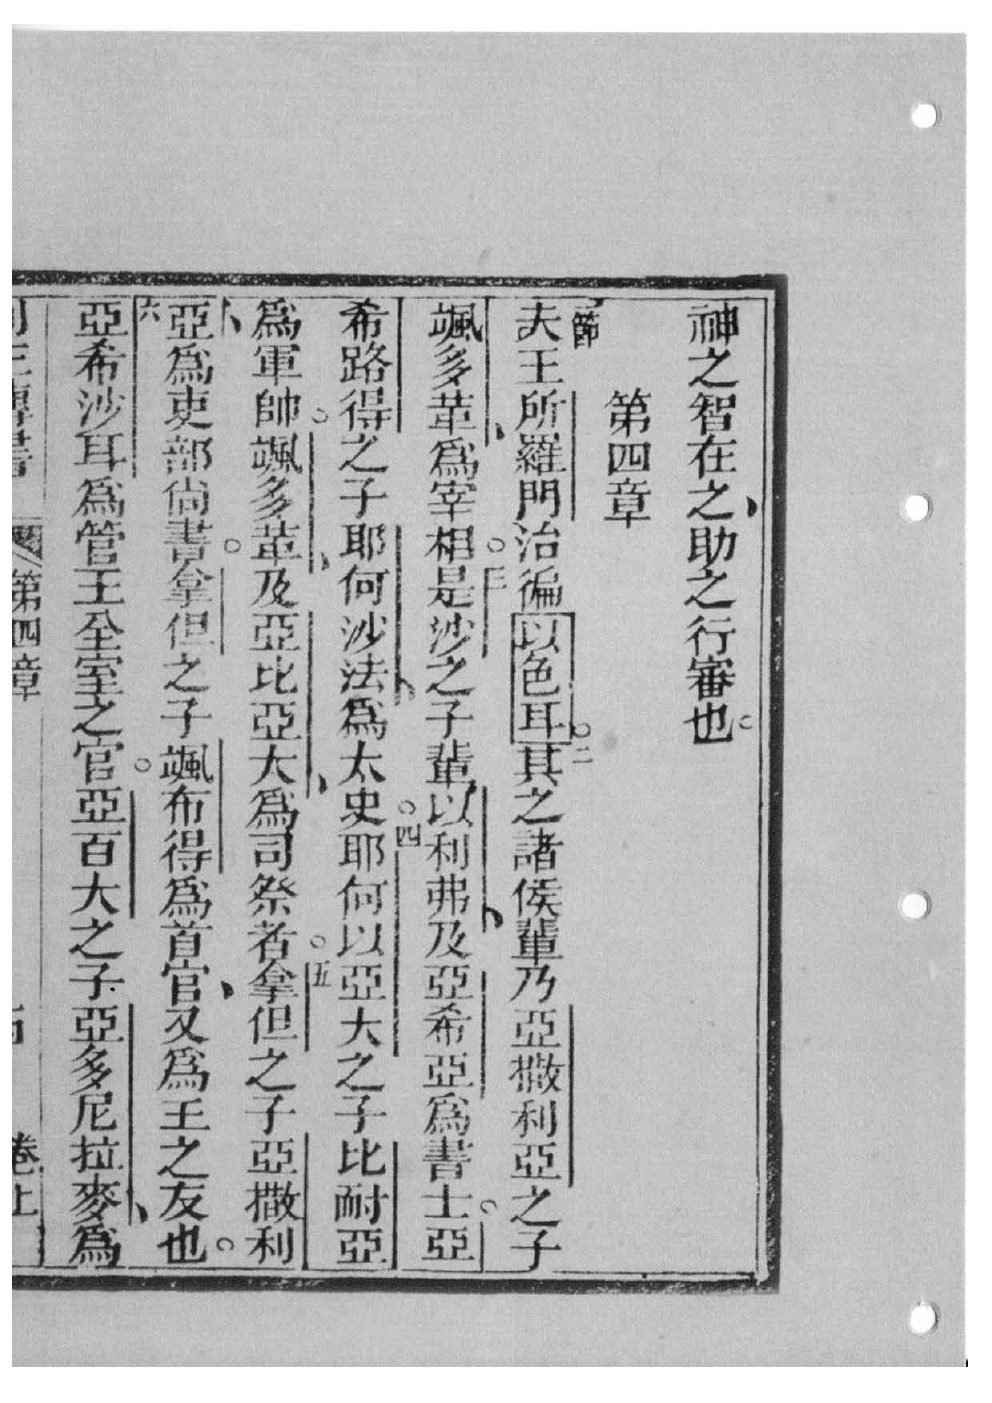 神之智在之助之行審也。
第四章
節夫王所羅門治徧以色耳。二其之諸侯輩乃亞撒利亞之子
颯多革、爲宰相。三是沙之子輩以利弗、及亞希亞爲書士。亞
希路得之子耶何沙法、爲太史。四耶何以亞大之子比耐亞
爲軍帥。颯多革、及亞比亞大、爲司祭者。五拿但之子亞撒利
亞、爲吏部尚書。拿但之子颯布得爲首官、又爲王之友也。
六亞希沙耳爲管王全室之官。亞百大之子亞多尼拉麥、爲
王傳書 第四章 卷上